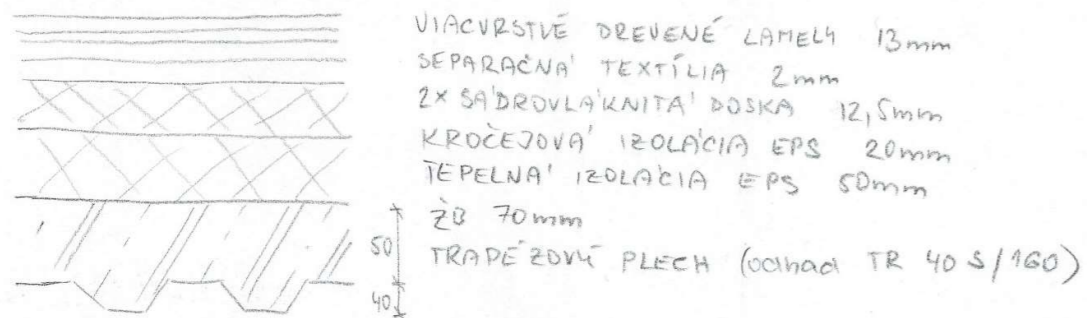 VIACVRSTVÉ DREVENÉ LAMELY 13mm
SEPARAČNÁ TEXTÍLIA 2mm
2× SÁDROVLÁKNITÁ DOSKA 12,5mm
KROČEJOVÁ IZOLÁCIA EPS 20mm
TEPELNÁ IZOLÁCIA EPS 50mm
ŽB 70mm
50
TRAPÉZOVÝ PLECH (odhad TR 40 S/160)
40